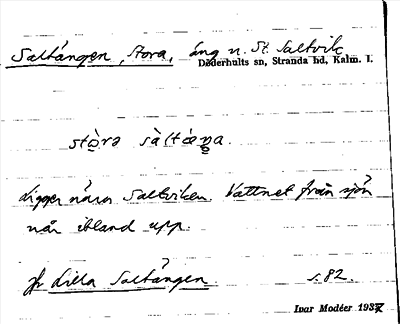 Saltängen, Stora, äng u. St. Saltvik
Döderhults sn, Stranda hd, Kalm. l.
stọ̀rə sàltæŋa.
Ligger nära Saltviken. Vattnet från sjön
når ibland upp.
Jfr Lilla Saltängen. s. 82.
Ivar Modéer 1937